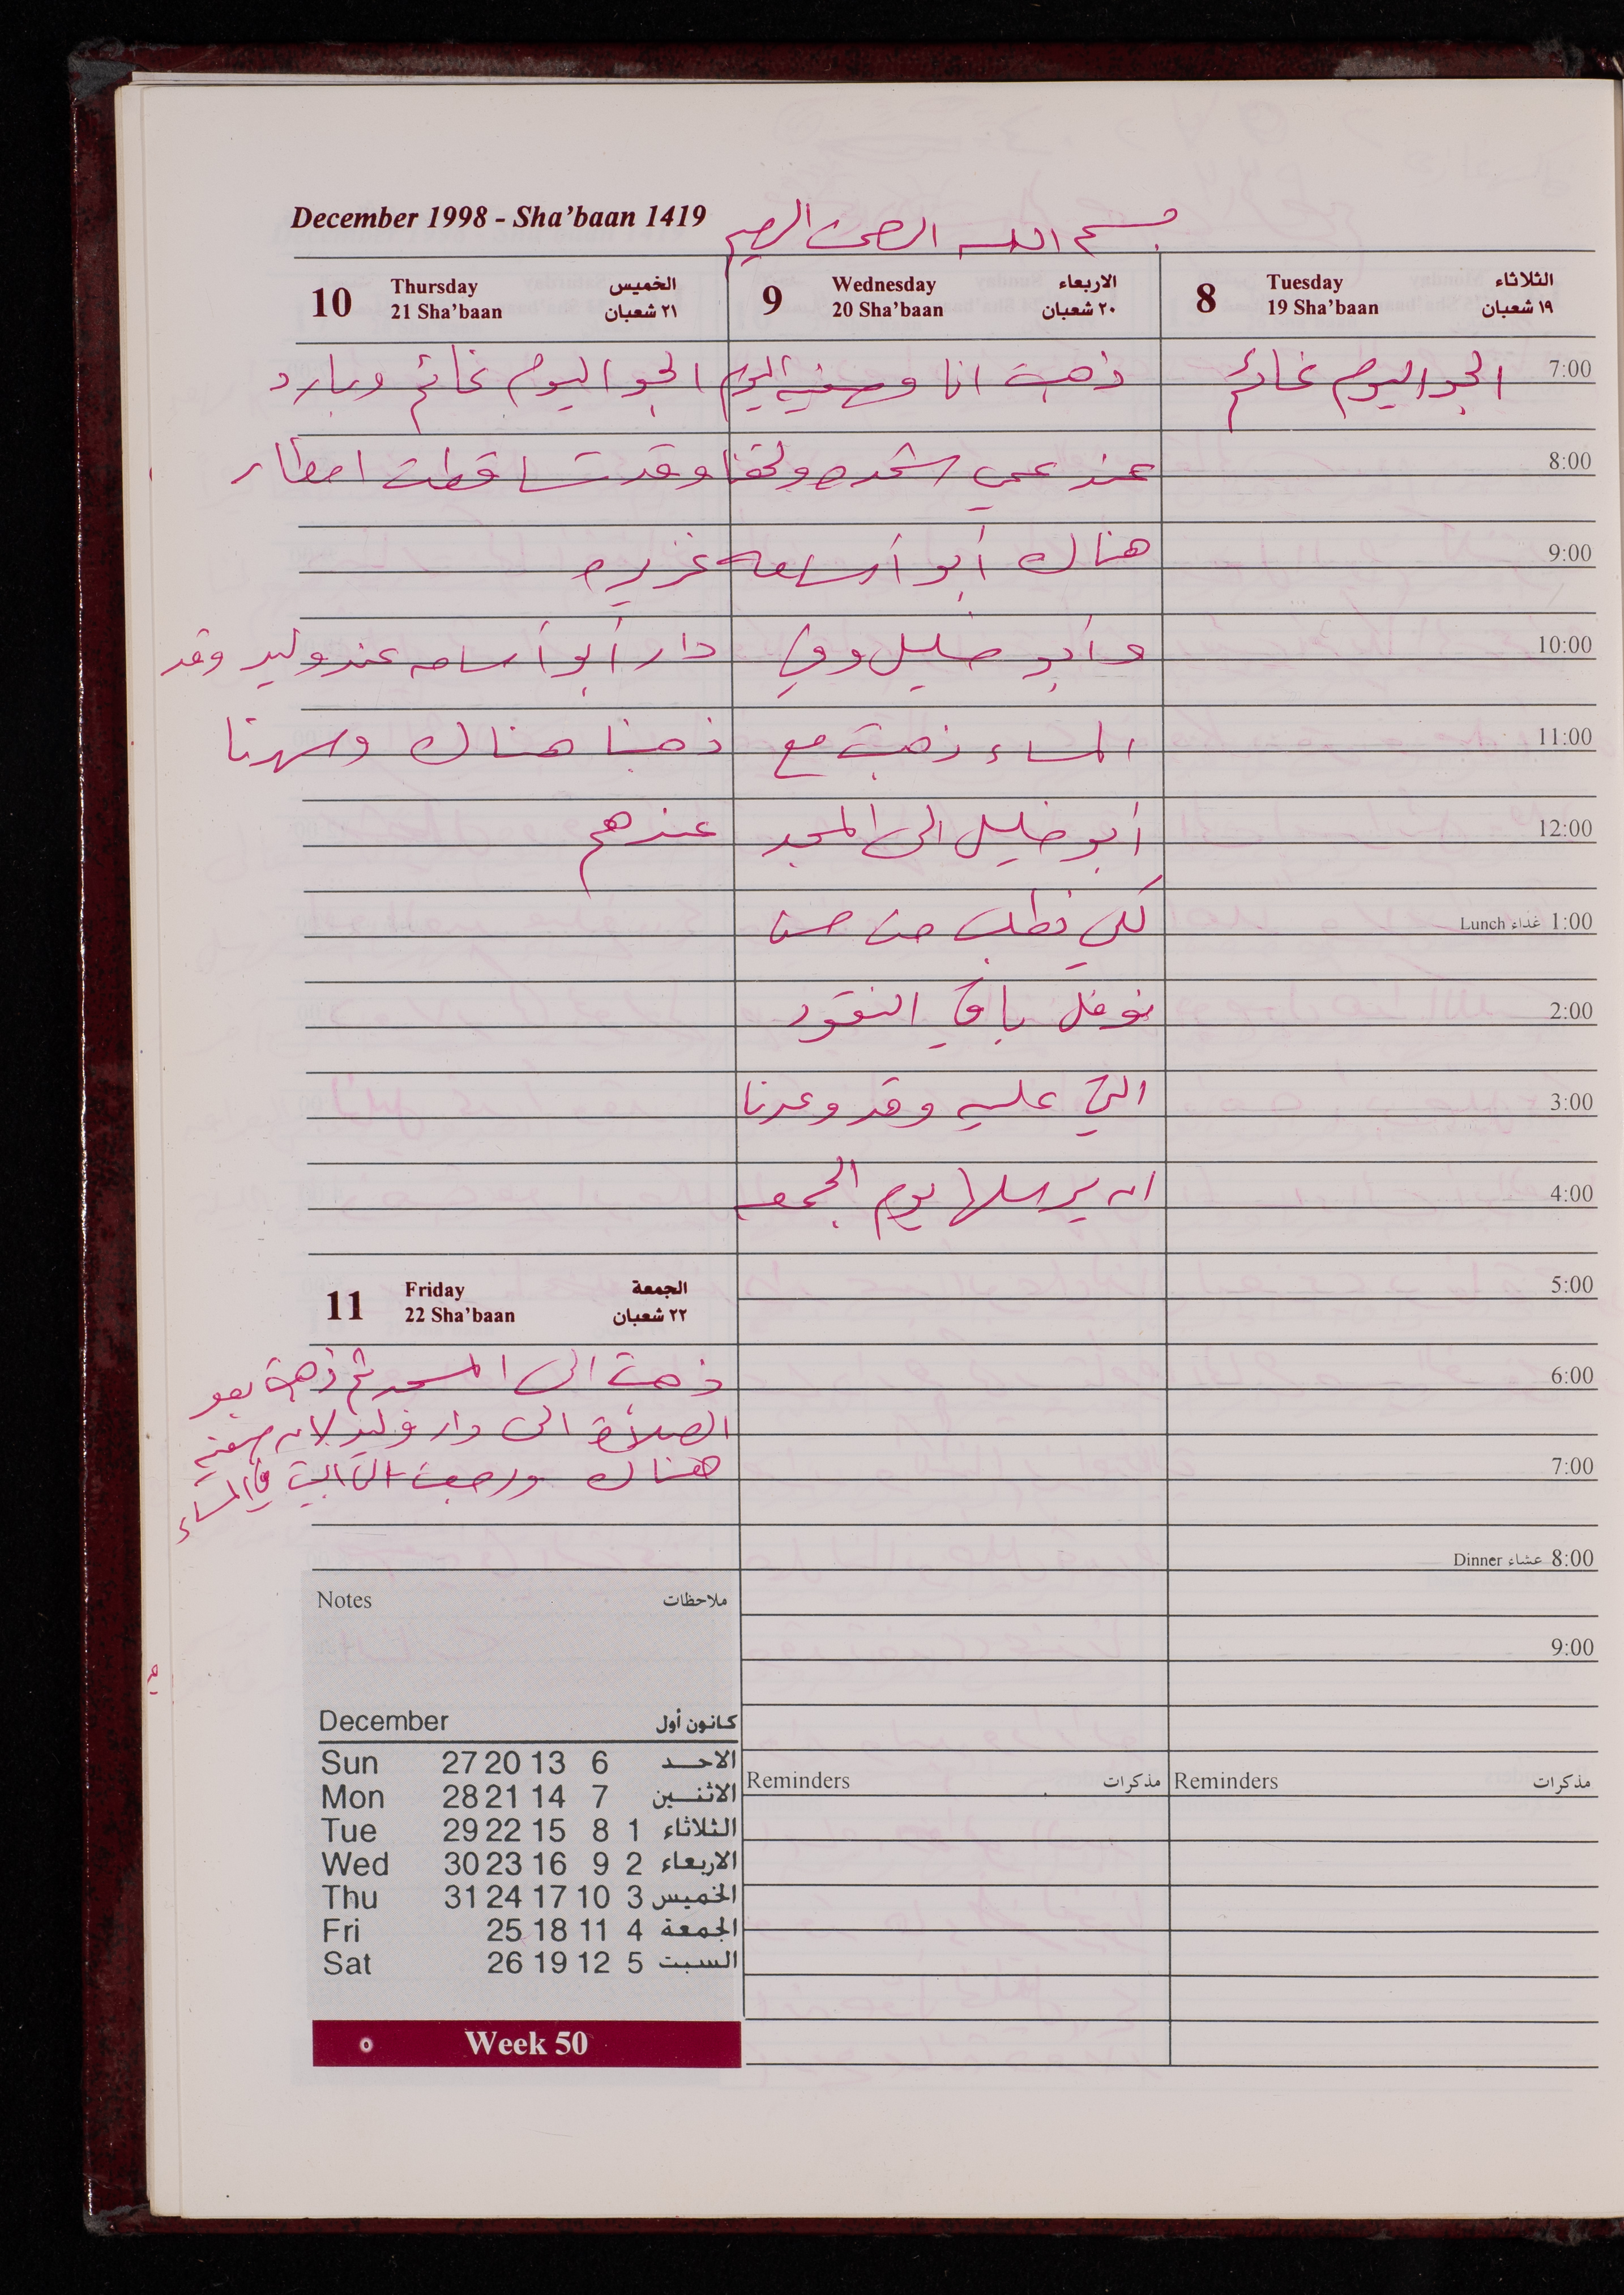 December 1998 - Sha'baan 1419
بسم الله الرحمن الرحيم
8 Tuesday الثلاثاء
19 Sha'baan ١٩ شعبان
7:00
الجو اليوم غائم
8:00
9:00
10:00
11:00
12:00
Lunch غداء 1:00
2:00
3:00
4:00
5:00
6:00
7:00
Dinner عشاء 8:00
9:00
Reminders مذكرات
9 Wednesday الاربعاء
20 Sha'baan ٢٠ شعبان
ذهبت انا وصفيه اليوم
عند عمي
هناك أبو أسامه
وأبو خليل وفي
المساء ذهبت مع
أبو خليل الى المسجد
لكي نطلب من حسن
نوفل باقي النقود
التي عليه وقد وعدنا
ان يرسلها يوم الجمعه
Reminders مذكرات
10 Thursday الخميس
21 Sha'baan ٢١ شعبان
الجو اليوم غائم وبارد
وقد تساقطت امطار
غزيره
دار أبو أسامه عند وليد وقد
ذهبنا هناك وسهرنا
عندهم
11 Friday الجمعة
22 Sha'baan ٢٢ شعبان
ذهبت الى المسجد ثم ذهبت بعد
الصلاة الى دار وليد لان صفيه
هناك ورجعت الى البيت في المساء
Notes ملاحظات
December كانون أول
Sun 27 20 13 6 الاحد
Mon 28 21 14 7 الاثنين
Tue 29 22 15 8 1 الثلاثاء
Wed 30 23 16 9 2 الاربعاء
Thu 31 24 17 10 3 الخميس
Fri 25 18 11 4 الجمعة
Sat 26 19 12 5 السبت
Week 50